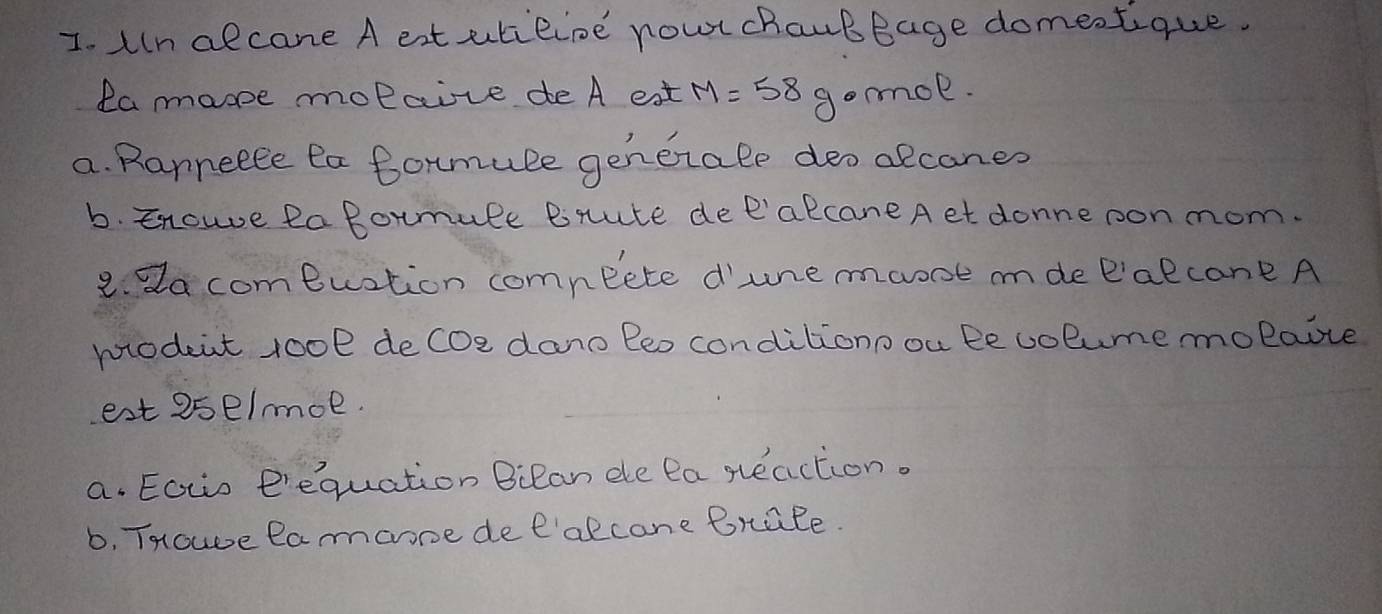 I. Un alcane A est utilisé pour chauffage domestique.
la masse molaire de A est M = 58 g.mol.
a. Rappelle la formule générale des alcanes
b. Trouve la formule brute de l'alcane A et donne son nom.
2. La combustion complète d'une masse m de l'alcane A
produit 100l de CO2 dans les conditions ou le volume molaire
est 25l/mol.
a. Ecris l'équation bilan de la réaction.
b. Trouve la masse de l'alcane brûle.